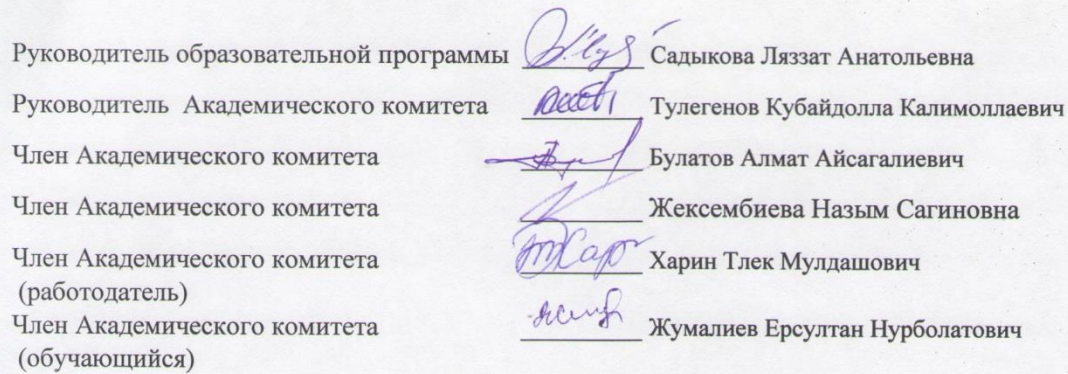 Руководитель образовательной программы Садыкова Ляззат Анатольевна
Руководитель Академического комитета Тулегенов Кубайдолла Калимоллаевич
Член Академического комитета Булатов Алмат Айсагалиевич
Член Академического комитета Жексембиева Назым Сагиновна
Член Академического комитета Харин Тлек Мулдашович
(работодатель)
Член Академического комитета Жумалиев Ерсултан Нурболатович
(обучающийся)